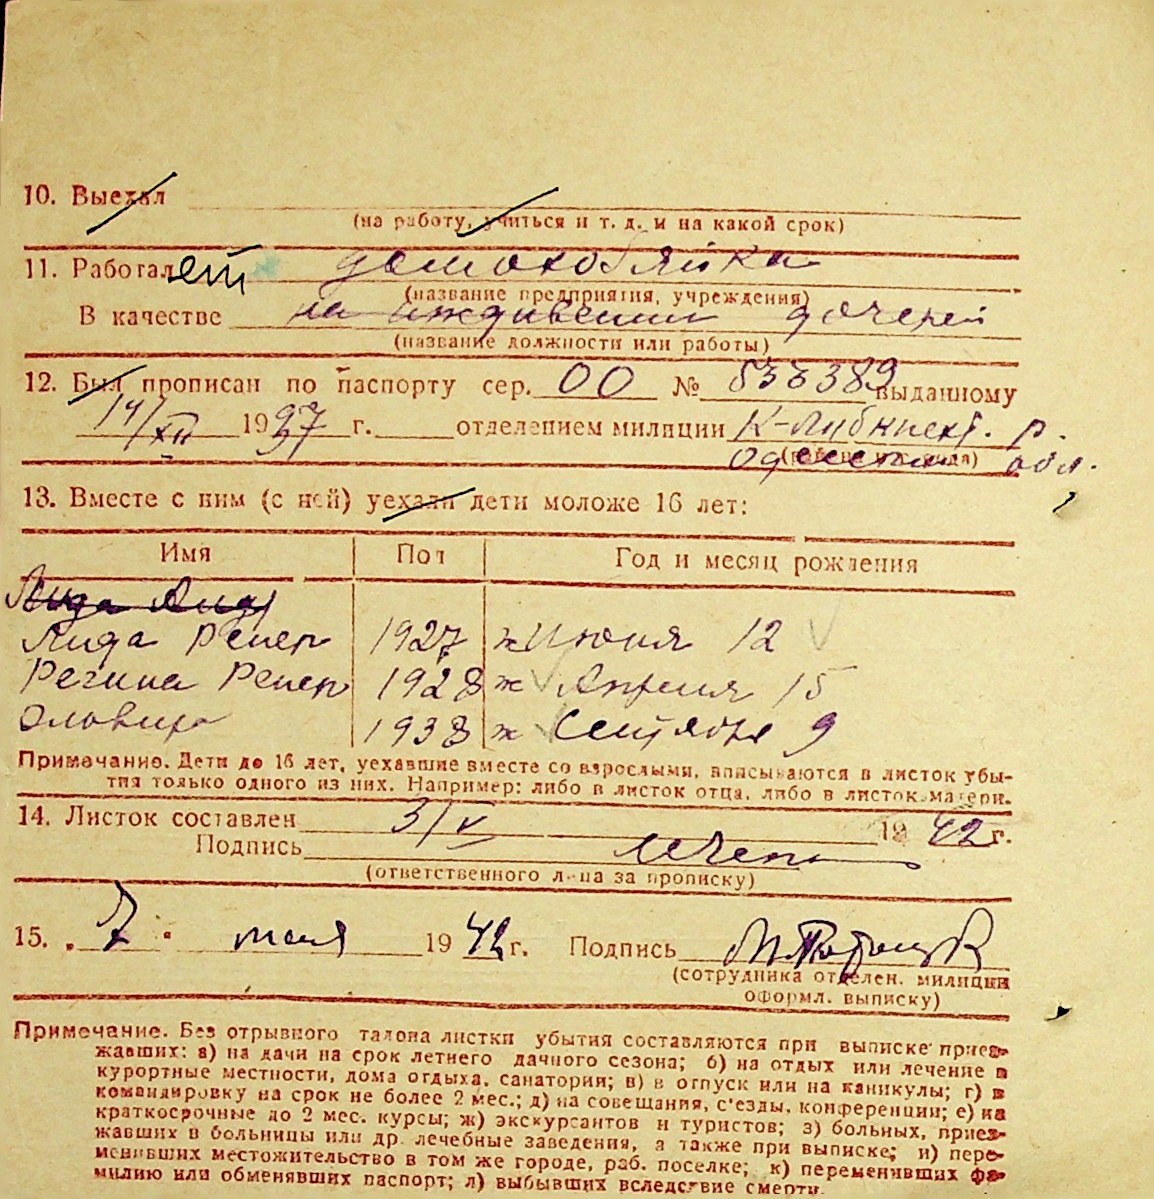 10. Выехал
(на работу, учиться и т. д. и на какой срок)
11. Работает домохозяйка
(название предприятия, учреждения)
В качестве на иждивении дочерей
(название должности или работы)
12. Был прописан по паспорту сер. ОО № 533389 выданному
14/XII 1937 г. отделением милиции К-Либкнехт. р.
Одесской обл.
13. Вместе с ним (с ней) уехали дети моложе 16 лет:
Имя Пол Год и месяц рождения
Лида
Лида Репер 1927 ж Июня 12
Регина Репер 1928 ж Апреля 15
1938 ж Сентября 9
Примечание. Дети до 16 лет, уехавшие вместе со взрослыми, вписываются в листок убы-
тия только одного из них. Например: либо в листок отца, либо в листок матери.
14. Листок составлен 3/V 1942 г.
Подпись
(ответственного лица за прописку)
15. „ 7 " мая 1942 г. Подпись
(сотрудника отделен. милиции
оформл. выписку)
Примечание. Без отрывного талона листки убытия составляются при выписке приез-
жавших: а) на дачи на срок летнего дачного сезона; б) на отдых или лечение в
курортные местности, дома отдыха, санатории; в) в отпуск или на каникулы; г) в
командировку на срок не более 2 мес.; д) на совещания, с'езды, конференции; е) на
краткосрочные до 2 мес. курсы; ж) экскурсантов и туристов; з) больных, приез-
жавших в больницы или др. лечебные заведения, а также при выписке; и) пере-
менивших местожительство в том же городе, раб. поселке; к) переменивших фа-
милию или обменявших паспорт; л) выбывших вследствие смерти.